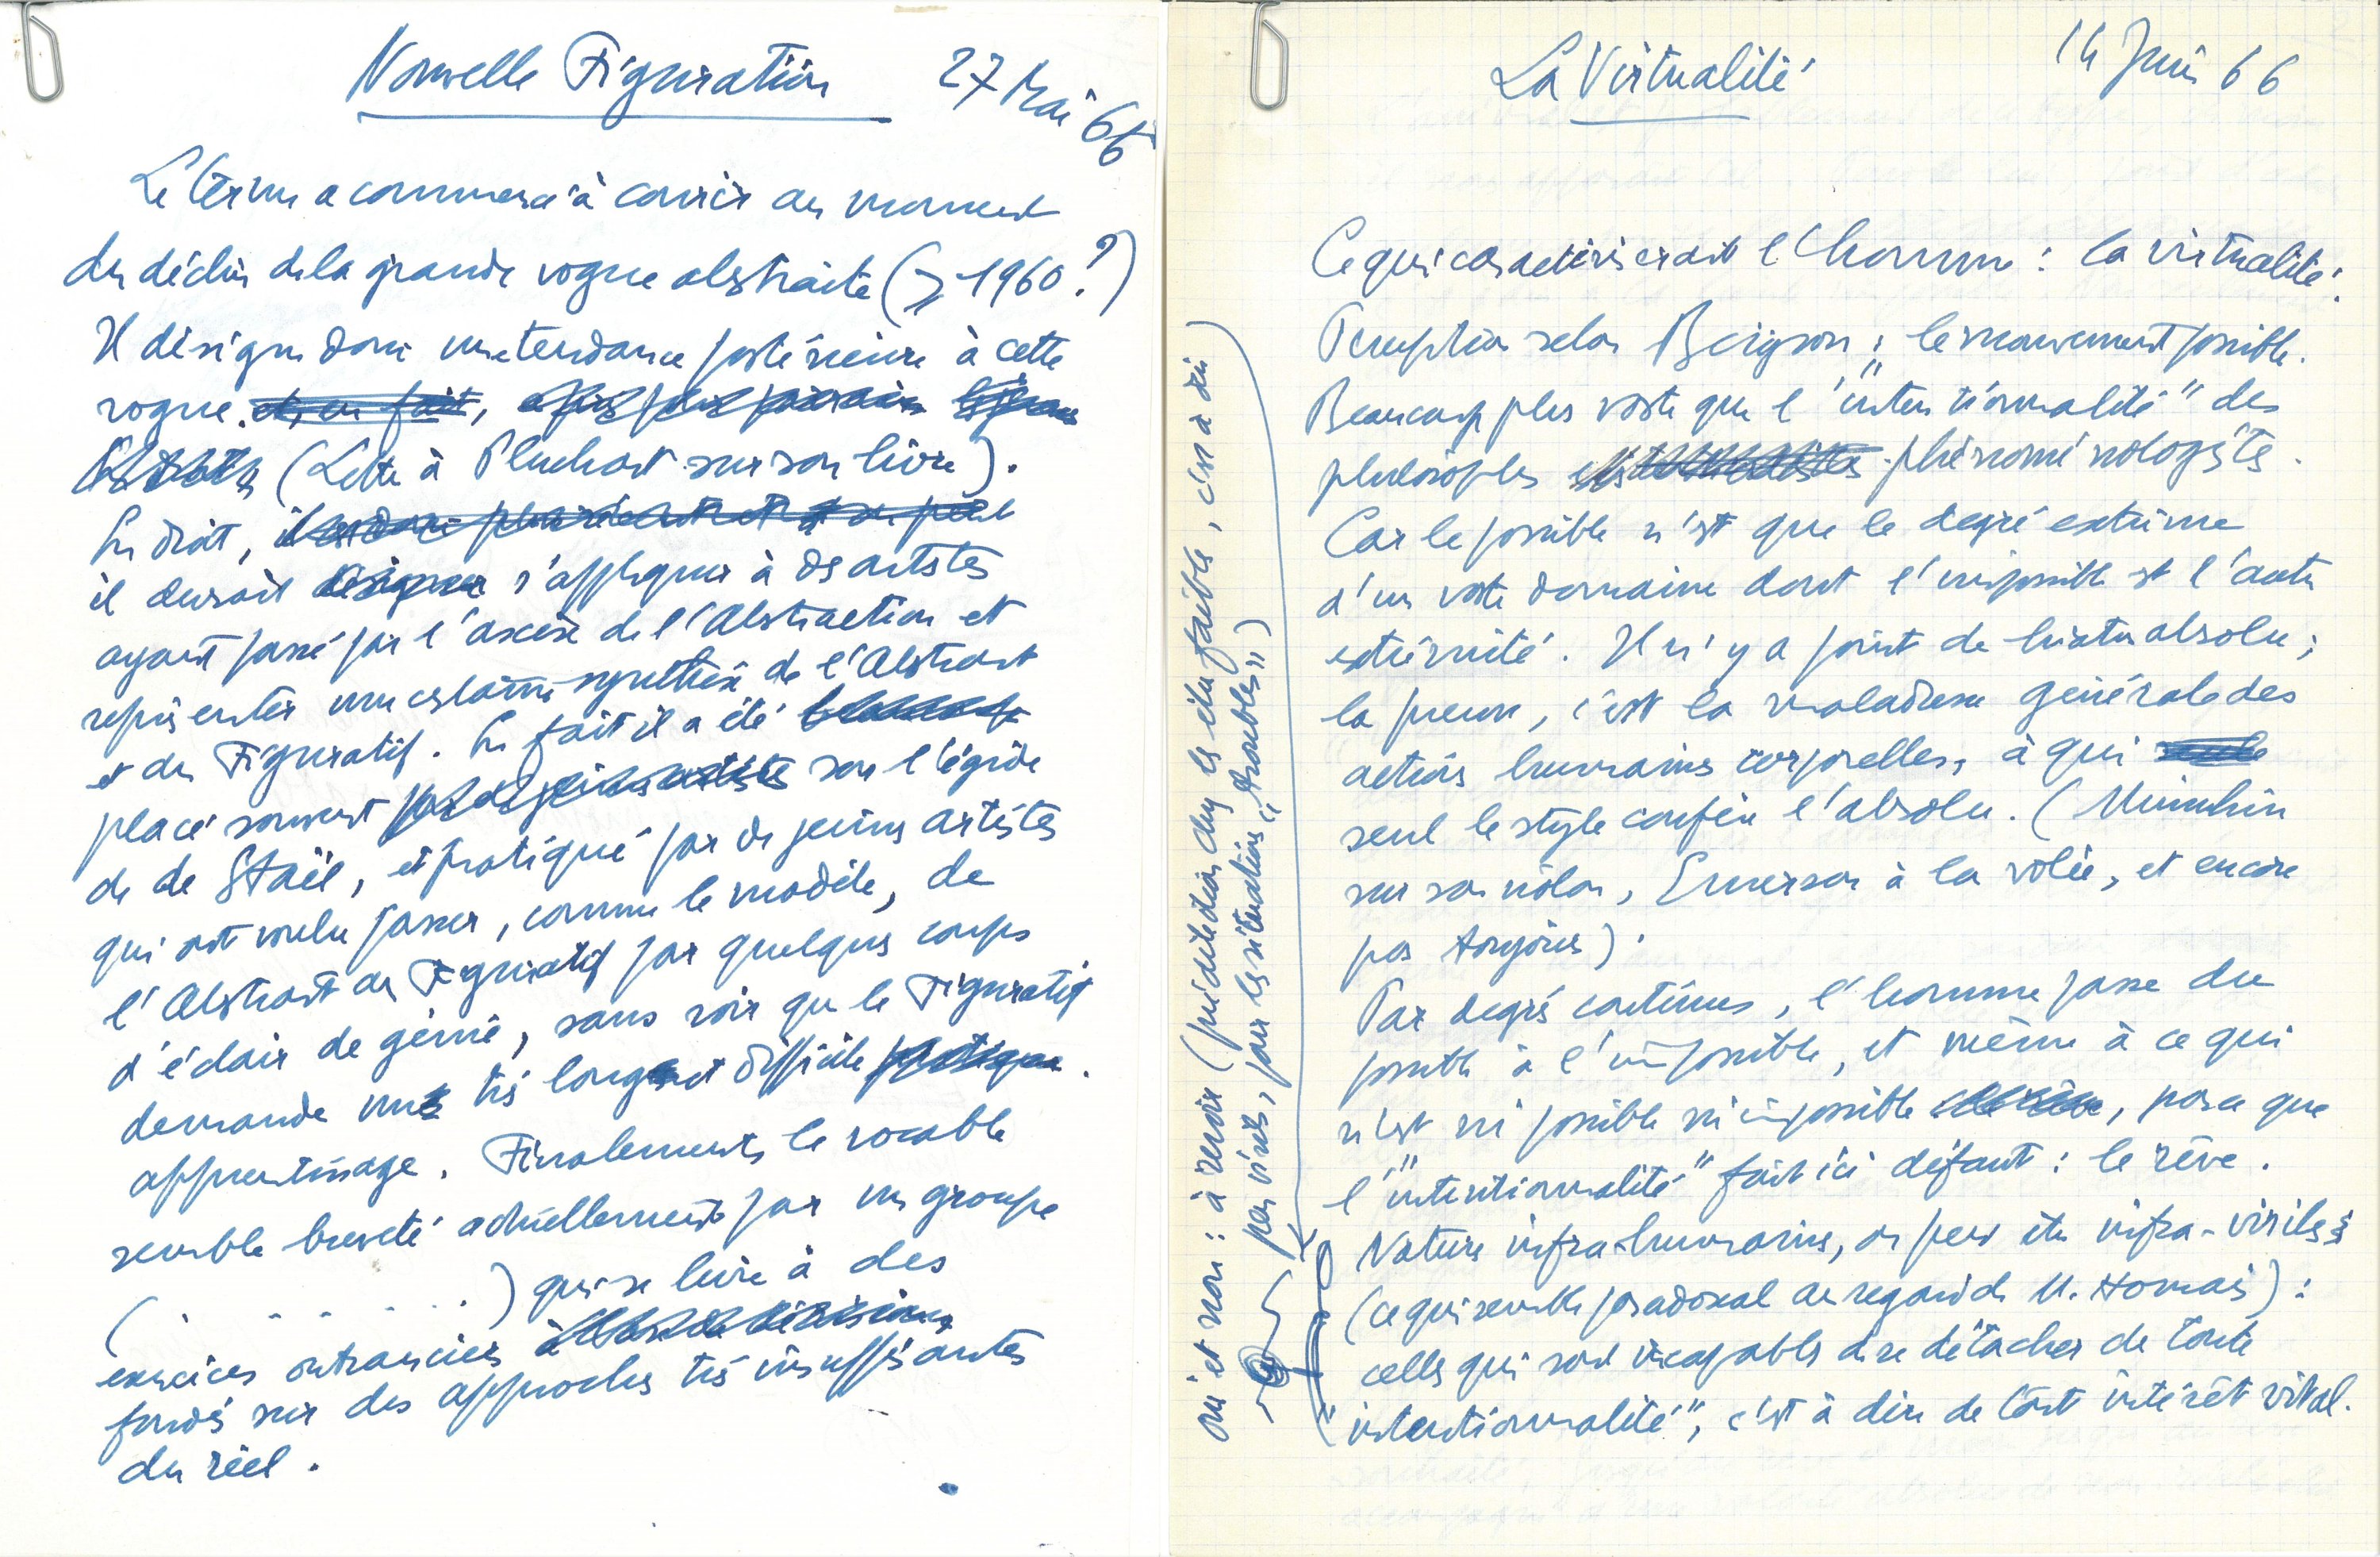 Nouvelle Figuration 27 Mai 66
Le terme a commencé à courir au moment
du déclin de la grande vogue abstraite (⩾ 1960 ?)
Il désigne donc une tendance postérieure à cette
vogue. et, en fait,
(Lettre à Pluchart sur son livre).
En droit, il est donc plus récent et
il devrait désigner s'appliquer à des artistes
ayant passé par l'ascèse de l'Abstraction et
représenter une certaine synthèse de l'Abstrait
et du Figuratif. En fait il a été
placé souvent par de jeunes artistes sous l'égide
de de Staël, et pratiqué par de jeunes artistes
qui ont voulu passer, comme le modèle, de
l'Abstrait au Figuratif par quelques coups
d'éclair de génie, sans voir que le Figuratif
demande un très long et difficile pratique.
apprentissage. Finalement, le vocable
semble breveté actuellement par un groupe
( . - - - - . ) qui se livre à des
exercices outranciers
fondés sur des approches très insuffisantes
du réel.
La Virtualité 14 Juin 66
Ce qui caractériserait l'homme : la virtualité.
Perception selon Bergson : le mouvement possible.
Beaucoup plus vaste que l'"intentionnalité" des
philosophes existentialistes phénoménologistes.
Car le possible n'est que le degré extrême
d'un vaste domaine dont l'impossible est l'autre
extrémité. Il n'y a point de hiatus absolu ;
la preuve, c'est la maladresse générale des
actions humaines corporelles, à qui seule
seul le style confère l'absolu. (Menuhin
sur son violon, Emerson à la volée, et encore
pas toujours).
Par degrés continus, l'homme passe du
possible à l'impossible, et même à ce qui
n'est ni possible ni impossible, parce que
l'"intentionnalité" fait ici défaut : le rêve.
Natures infra-humaines, ou peut être infra-viriles
(ce qui semble paradoxal au regard de M. Homais) :
celles qui sont incapables de se détacher de toute
"intentionnalité", c'est à dire de tout intérêt vital.
oui et non : à revoir (prédilection chez les êtres faibles, c'est à dire
peu virils, pour les situations "troubles")